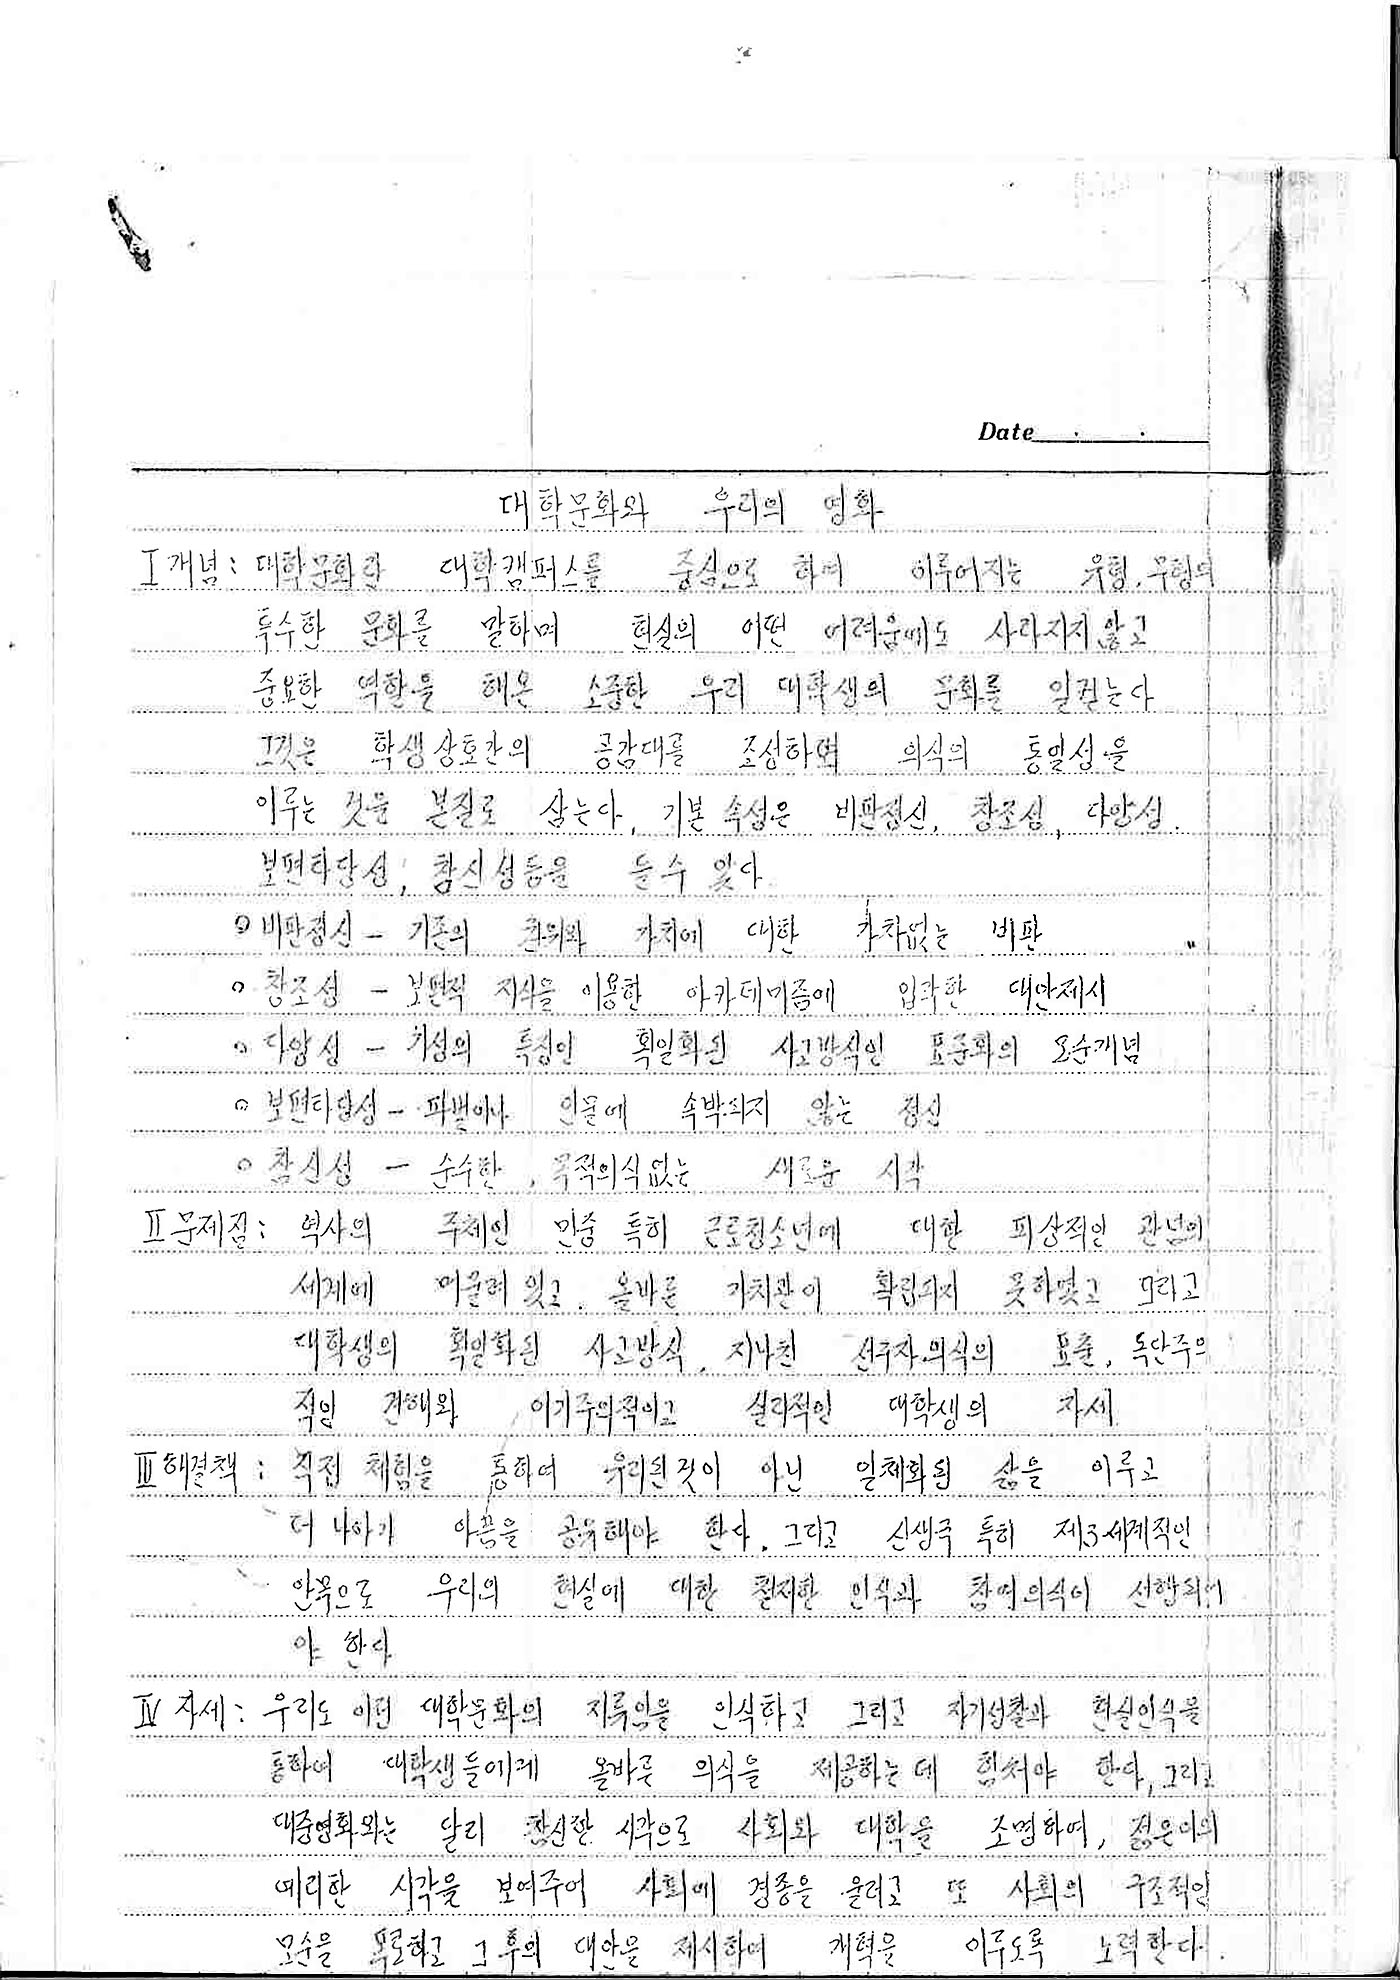 Date
대학문화와 우리의 영화
I 개념 : 대학문화란 대학캠퍼스를 중심으로 하여 이루어지는 유형.무형의
특수한 문화를 말하며 현실의 어떤 어려움에도 사라지지않고
중요한 역할을 해온 소중한 우리 대학생의 문화를 일컫는다
그것은 학생상호간의 공감대를 조성하며 의식의 통일성을
이루는 것을 본질로 삼는다, 기본 속성은 비판정신, 창조성, 다양성.
보편타당성, 참신성등을 들수 있다.
○ 비판정신 - 기존의 권위와 가치에 대한 가차없는 비판
○ 창조성 - 보편적 지식을 이용한 아카데미즘에 입각한 대안제시
○ 다양성 - 기성의 특징인 획일화된 사고방식인 표준화의 모순개념
○ 보편타당성 - 파벌이나 인물에 속박되지 않는 정신
○ 참신성 - 순수한, 목적의식없는 새로운 시각
II 문제점 : 역사의 주체인 민중 특히 근로청소년에 대한 피상적인 관념의
세계에 머물러 있고. 올바른 가치관이 확립되지 못하였고 그리고
대학생의 획일화된 사고방식, 지나친 선구자.의식의 표출, 독단주의
적인 견해와 이기주의적이고 실리적인 대학생의 자세
III 해결책 : 직접 체험을 통하여 유리된것이 아닌 일체화된 삶을 이루고
더 나아가 아픔을 공유해야 한다. 그리고 신생국 특히 제3세계적인
안목으로 우리의 현실에 대한 철저한 인식과 참여의식이 선행되어
야 한다
IV 자세 : 우리도 이런 대학문화의 지류임을 인식하고 그리고 자기성찰과 현실인식을
통하여 대학생들에게 올바른 의식을 제공하는데 힘써야 한다, 그리고
대중영화와는 달리 참신한 시각으로 사회와 대학을 조명하여, 젊은이의
예리한 시각을 보여주어 사회에 경종을 울리고 또 사회의 구조적인
모순을 폭로하고 그 후의 대안을 제시하여 개혁을 이루도록 노력한다.